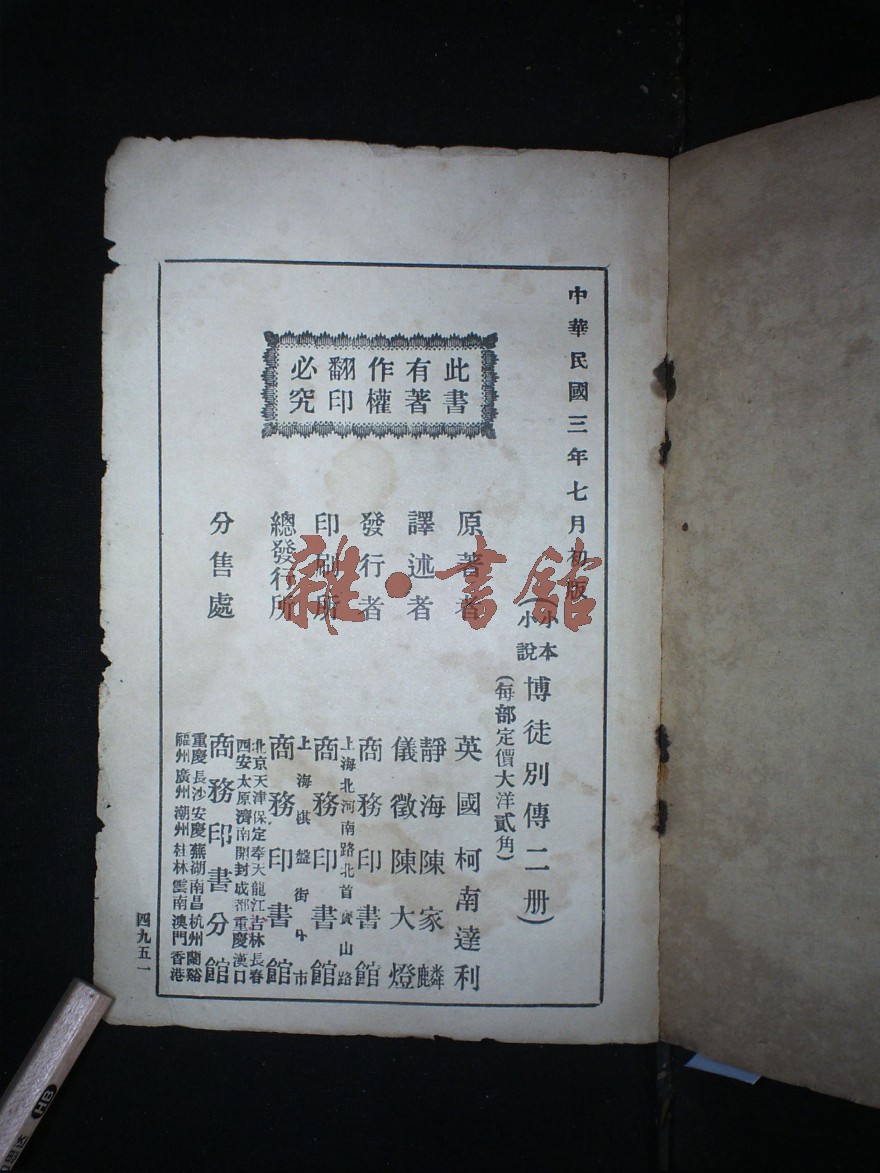 中華民國三年七月初版
(小本小說 博徒別傳二册)
(每部定價大洋貳角)
此書有著作權翻印必究
原著者 英國柯南達利
譯述者 靜海陳家麟
儀徵陳大燈
發行者 商務印書館
上海北河南路北首寶山路
印刷所 商務印書館
上海棋盤街中市
總發行所 商務印書館
北京天津保定奉天龍江吉林長春
西安太原濟南開封成都重慶漢口
分售處 商務印書分館
重慶長沙安慶蕪湖南昌杭州蘭谿
福州廣州潮州桂林雲南澳門香港
四九五一
雜·書館
HB